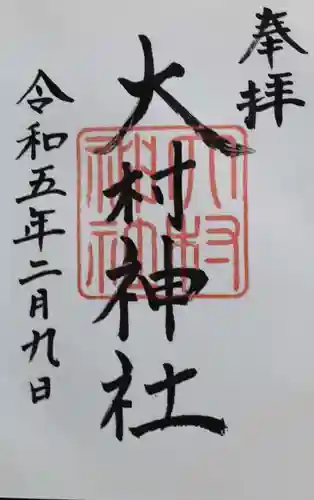 奉拝
大村神社
大村
神社
令和五年二月九日